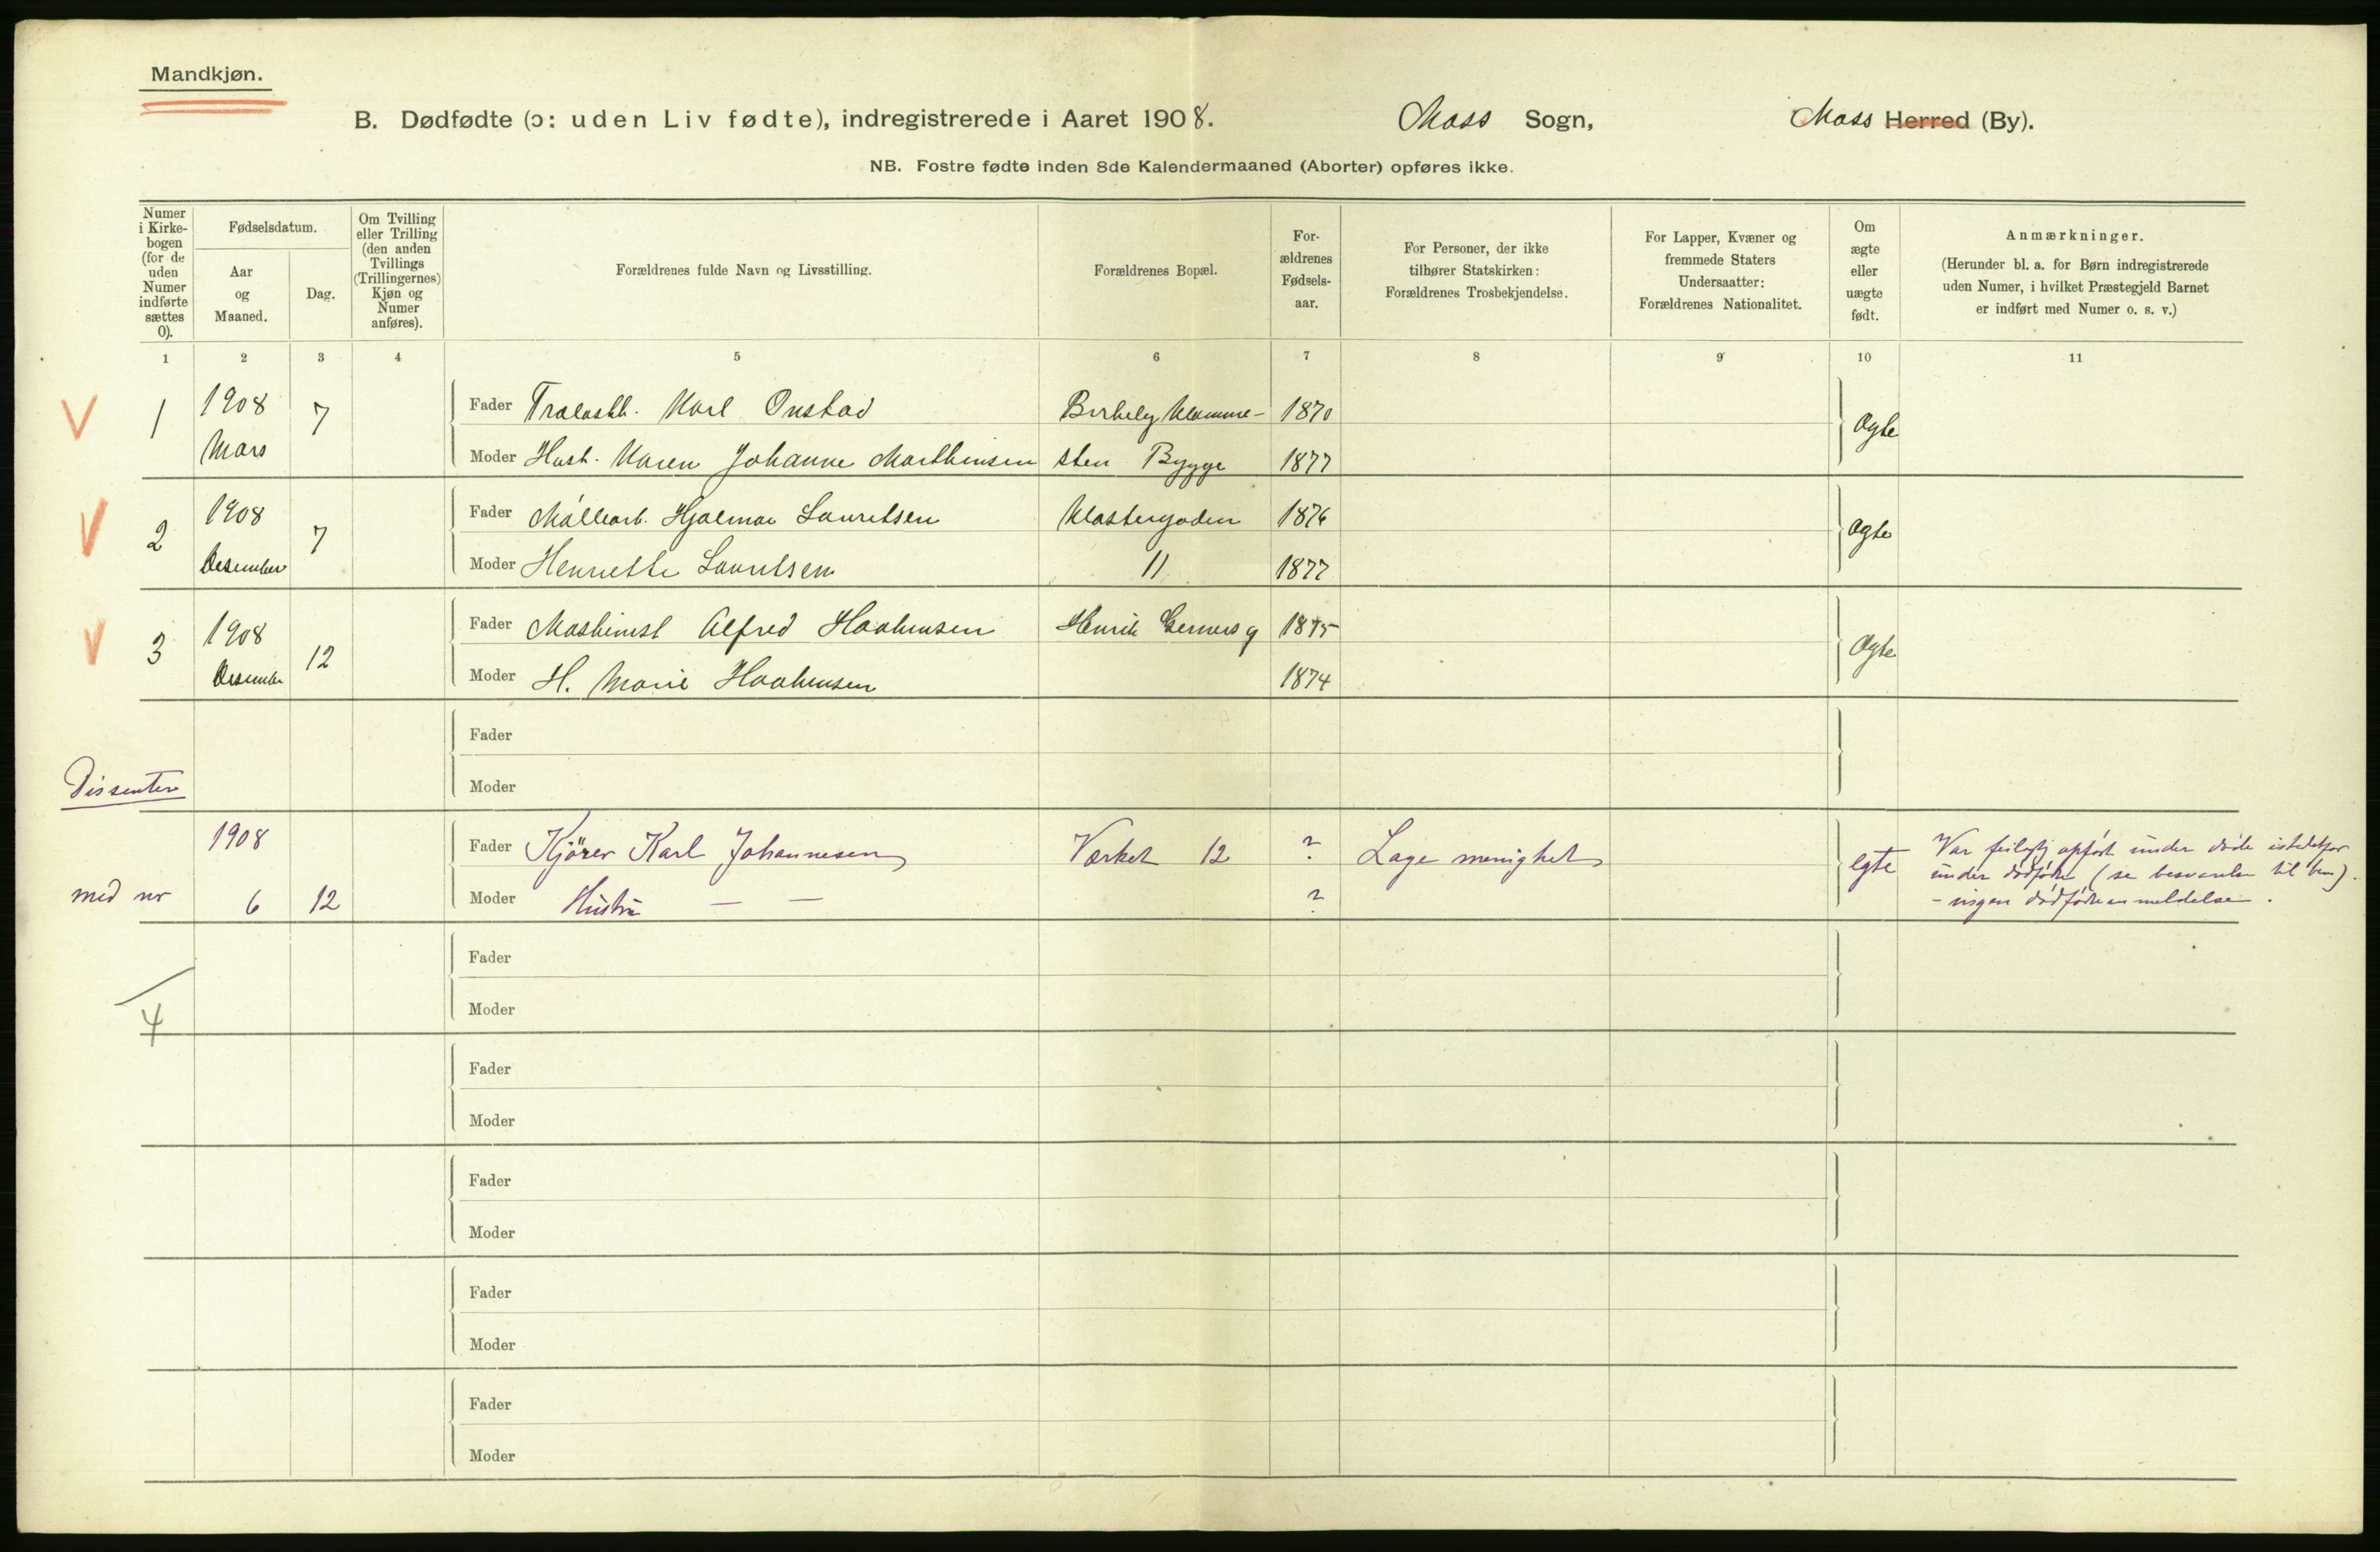 Mandkjøn.
B. Dødfødte (ɔ: uden Liv fødte), indregistrerede i Aaret 1908. Moss Sogn, Moss Herred (By).
NB. Fostre fødte inden 8de Kalendermaaned (Aborter) opføres ikke.
Numer
i Kirke-
bogen
(for de
uden
Numer
indførte
sættes
0).
Fødselsdatum.
Aar
og
Maaned.
Dag.
Om Tvilling
eller Trilling
(den anden
Tvillings
(Trillingernes)
Kjøn og
Numer
anføres).
Forældrenes fulde Navn og Livsstilling.
Forældrenes Bopæl.
For-
ældrenes
Fødsels-
aar.
For Personer, der ikke
tilhører Statskirken:
Forældrenes Trosbekjendelse.
For Lapper, Kvæner og
fremmede Staters
Undersaatter:
Forældrenes Nationalitet.
Om
ægte
eller
uægte
født.
Anmærkninger.
(Herunder bl. a. for Børn indregistrerede
uden Numer, i hvilket Præstegjeld Barnet
er indført med Numer o. s. v.)
1 2 3 4 5 6 7 8 9 10 11
V 1 1908 Mars 7
Fader Karl Onstad 1870
Moder Hust. Karen Johanne Marthinsen sten Bygge 1877
Ægte
V 2 1908 Desember 7
Fader Møllearb. Hjalmar Lauritsen Klostergaden 1876
Moder Henriette Lauritsen 11 1877
Ægte
V 3 1908 Desember 12
Fader Maskinist Alfred Haakensen Henrik Gerners g 1875
Moder H. Marie Haakensen 1874
Ægte
Fader
Moder
Dissentere
1908
Fader Kjører Karl Johannesen Værket 12 ? Lage menighet
med nr 6 12
Moder Hustru — — ?
egte
Var feilagtig opført under døde istedetfor
under dødfødte (se besvarelse til ).
- ingen dødfødteanmeldelse.
Fader
Moder
4
Fader
Moder
Fader
Moder
Fader
Moder
Fader
Moder